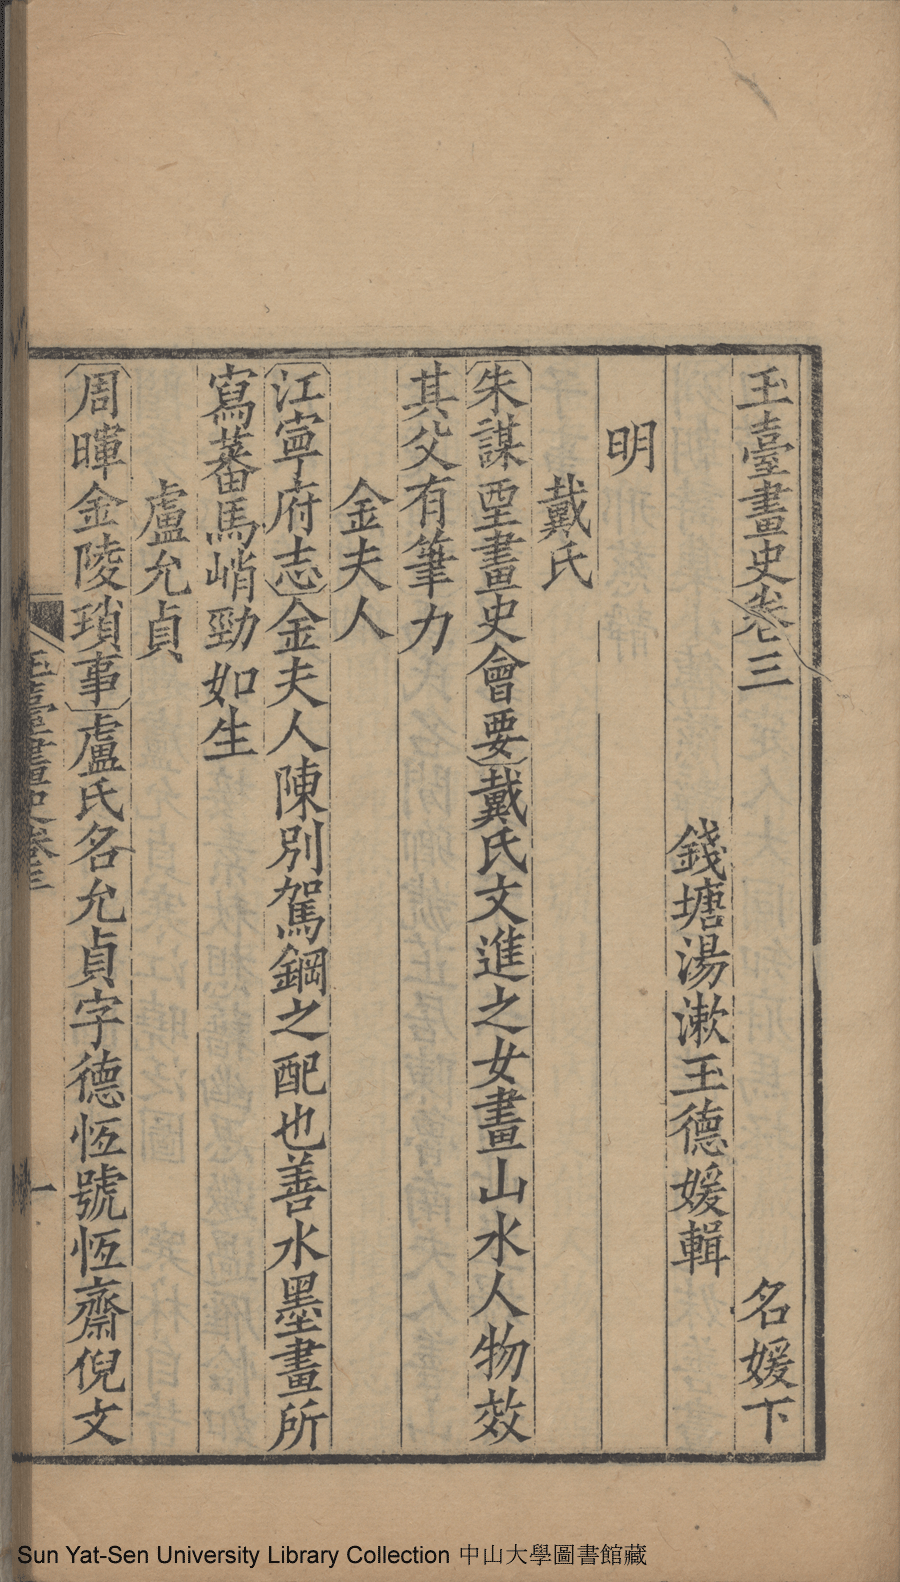 玉臺畫史卷三 名媛下
錢塘湯漱玉德媛輯
明
戴氏
〔朱謀垔畫史會要〕戴氏文進之女畫山水人物效
其父有筆力
金夫人
〔江寧府志〕金夫人陳別駕鋼之配也善水墨畫所
寫蕃馬峭勁如生
盧允貞
〔周暉金陵瑣事〕盧氏名允貞字德恆號恆齋倪文
玉臺畫史卷三 一
Sun Yat-Sen University Library Collection 中山大學圖書館藏